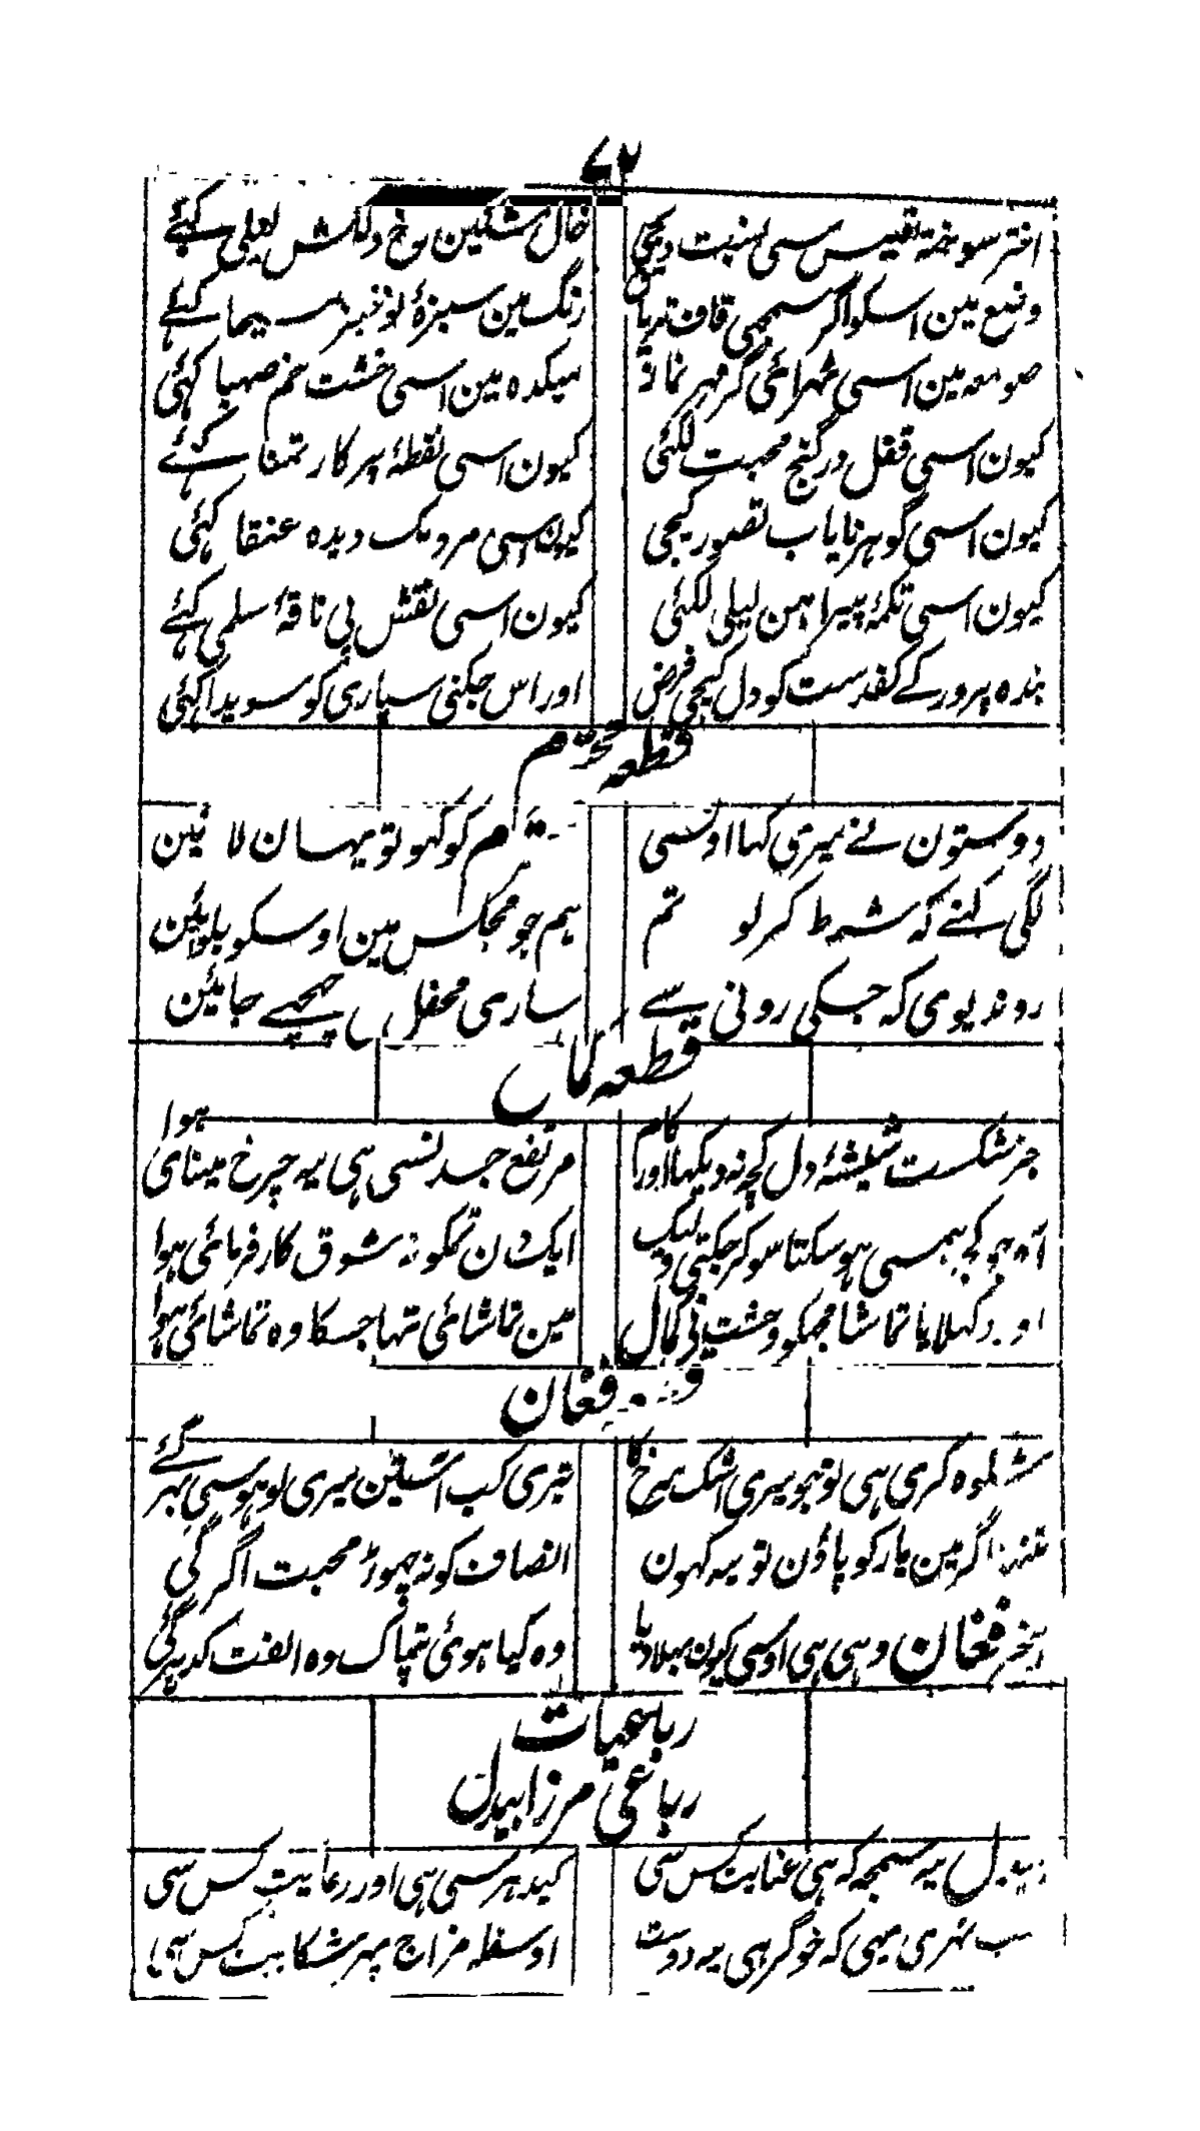 ۷۲
اختر سوختہ قیس سی نسبت دیجی
خال مشکین رخ دلکش لیلی کہئے
وضع مین اسکو اگر سمجھی قاف تریاق
رنگ مین سبزۂ نوخیز مسیحا کہئے
صومعہ مین اسی ٹھہرائی گر مہر نماز
میکدہ مین اسی خشت خم صہبا کہئی
کیون اسی قفل در گنج محبت لکہئی
کیون اسی نقطۂ پرکار تمنا کہئے
کیون اسی گوہر نایاب تصور کیجی
کیون اسی مردمک دیدہ عنقا کہئی
کیون اسی تکمۂ پیراہن لیلی لکہئی
کیون اسی نقش پی ناقۂ سلمی کہئے
بندہ پرور کے کفدست کو دل کیجی فرض
اور اس چکنی سپاری کو سویدا کہئی
قطعہ
دوستون نے میری کہا اوسی
کو کہو تو یہان لائین
لگی کہنے کہ شرط کر لو تم
ہم جو مجلس مین اوسکو بلوائین
رو ندیوی کہ جسکی رونی سے
ساری محفل چھپے جائین
قطعہ کمال
جز شکست شیشۂ دل کچہ نہ دیکہا اور کام
مرتفع جد نسی ہی یہ چرخ مینای ہوا
آہ جو کچہ ہمسی ہو سکتا سو کر چکتی ولیک
ایک دن تمکو نہ شوق کار فرمائی ہوا
اور دکہلایا تماشا مجہکو وحشت نی کمال
مین تماشائی تہا جسکا وہ تماشائی ہوا
فغان
شکوہ کری ہی تو جو میری اشک سرخ کا
تیری کب آستین میری لوہو سی بہر گئے
تنہا اگر مین یار کو پاؤن تو یہ کہون
انصاف کو نہ چھوڑ محبت اگر گئی
آخر فغان وہی ہی اوسی کیون بہلا دیا
وہ کیا ہوئی تپاک وہ الفت کدہر گئی
رباعیات
رباعی مرزا بیدل
بیدل یہ سمجہہ کہ ہی عنایت کس سی
کید ہر سی ہی اور رعایت کس سی
کہ خوگر ہی یہ دوست
او سفلہ مزاج پہر شکایت کس سی